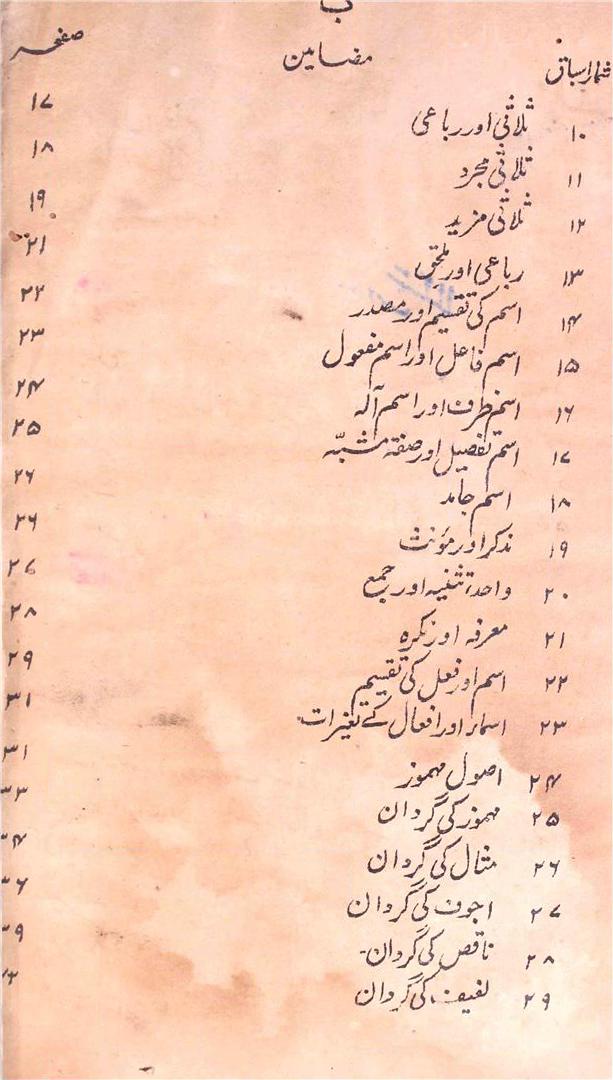 ب
شمار اسباق مضامین صفحہ
۱۰ ثلاثی اور رباعی ۱۷
۱۱ ثلاثی مجرد ۱۸
۱۲ ثلاثی مزید ۱۹
۱۳ رباعی اور ملحق ۲۱
۱۴ اسم کی تقسیم اور مصدر ۲۲
۱۵ اسم فاعل اور اسم مفعول ۲۳
۱۶ اسم ظرف اور اسم آلہ ۲۴
۱۷ اسم تفضیل اور صفۃ مشبّہ ۲۵
۱۸ اسم جامد ۲۶
۱۹ مذکر اور مؤنث ۲۶
۲۰ واحد، تثنیہ اور جمع ۲۷
۲۱ معرفہ اور نکرہ ۲۸
۲۲ اسم اور فعل کی تقسیم ۲۹
۲۳ اسماء اور افعال کے تغیرات۔ ۳۱
۲۴ اصول مہموز ۳۱
۲۵ مہموز کی گردان ۳۳
۲۶ مثال کی گردان ۳۴
۲۷ اجوف کی گردان ۳۶
۲۸ ناقص کی گردان۔ ۳۹
۲۹ لفیف کی گردان